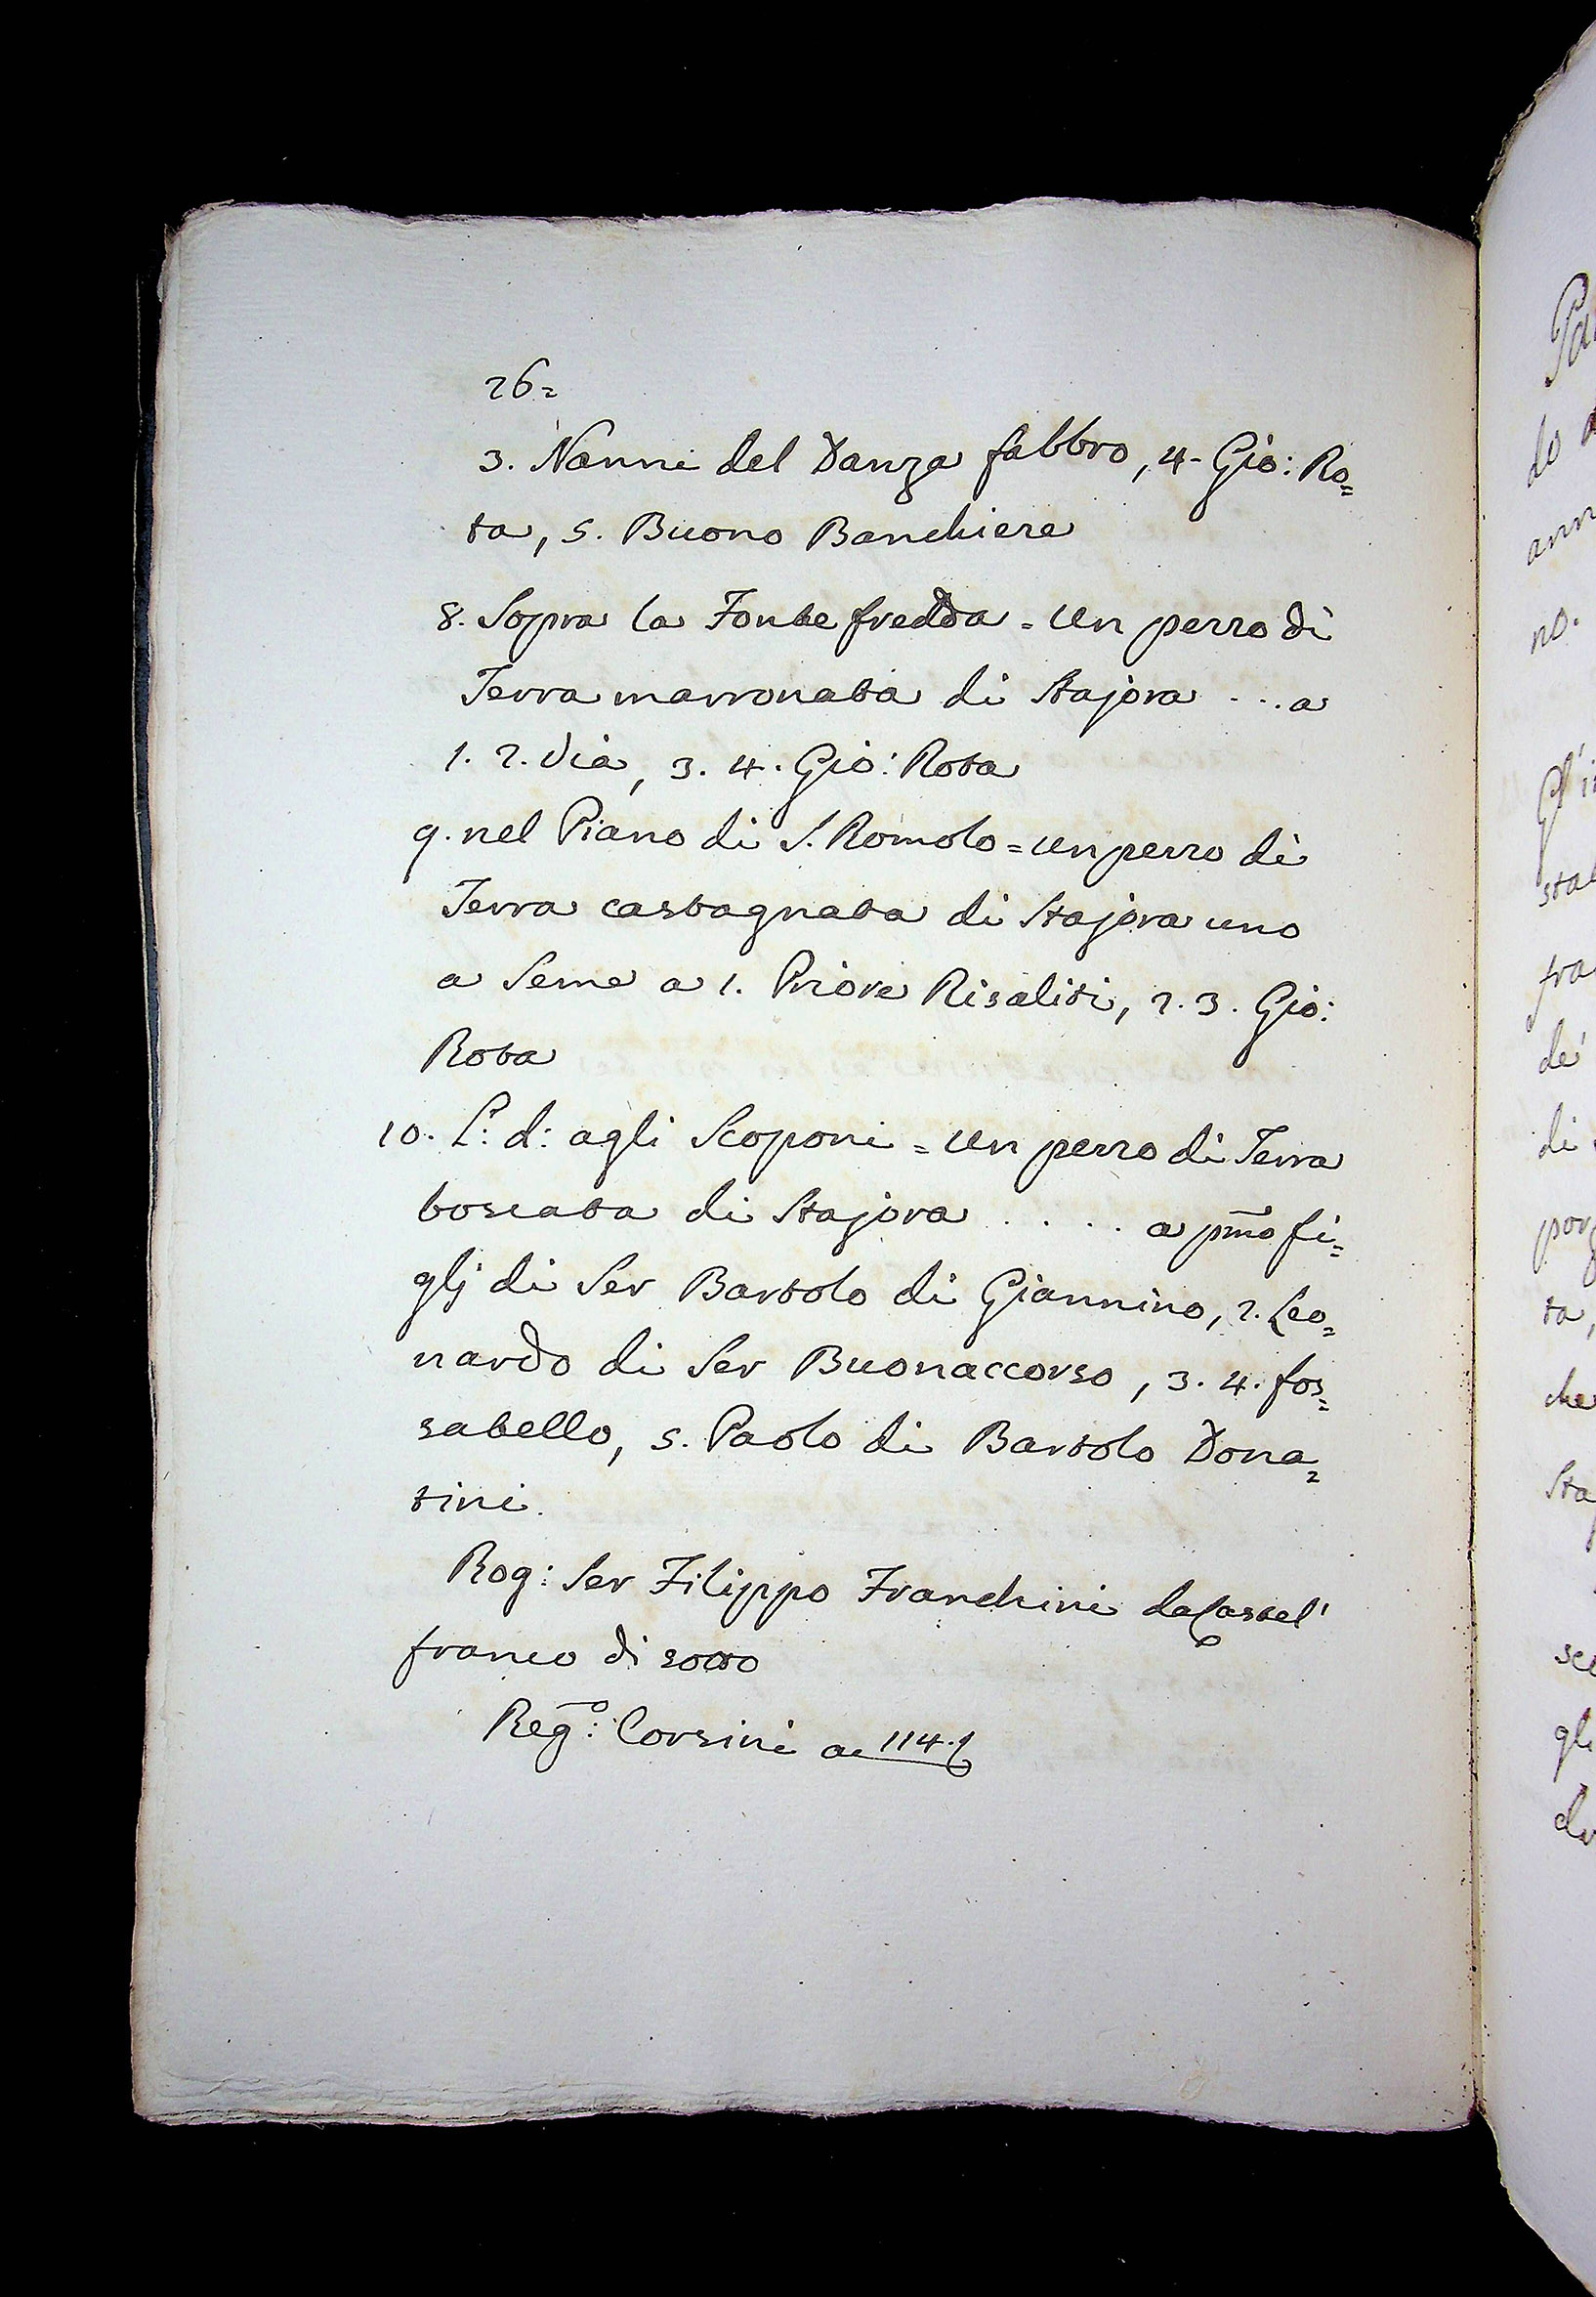 26=
3. Nanni del Danza fabbro, 4. Gio: Ro=
ta, 5. Buono Banchiere
8. Sopra la Fonte fredda = Un pezzo di
Terra marronata di Stajora ... a
1. 2. Via, 3. 4. Gio: Rota
9. nel Piano di S. Romolo = un pezzo di
Terra castagnata di Stajora uno
a Seme a 1. Priore Risaliti, 2. 3. Gio:
Rota
10. L: d: agli Scoponi = Un pezzo di Terra
boscata di Stajora . . . . a pmo fi=
glj di Ser Bartolo di Giannino, 2. Leo=
nardo di Ser Buonaccorso, 3. 4. fos=
satello, 5. Paolo di Bartolo Dona=
tini.
Rog: Ser Filippo Franchini da Castel'
franco di sotto
Rego: Corsini a 114.